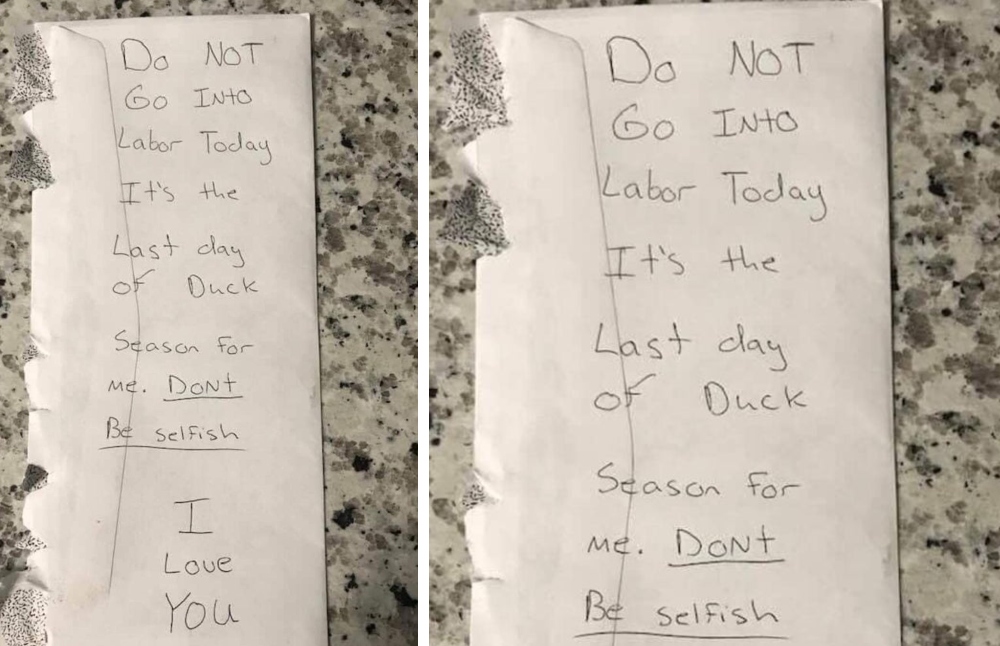 Do NOT
Go INto
Labor Today
It's the
Last day
of Duck
Season for
me. DONt
Be selfish
I
Love
YOU
Do NOT
Go INto
Labor Today
It's the
Last day
of Duck
Season for
me. DONt
Be selfish